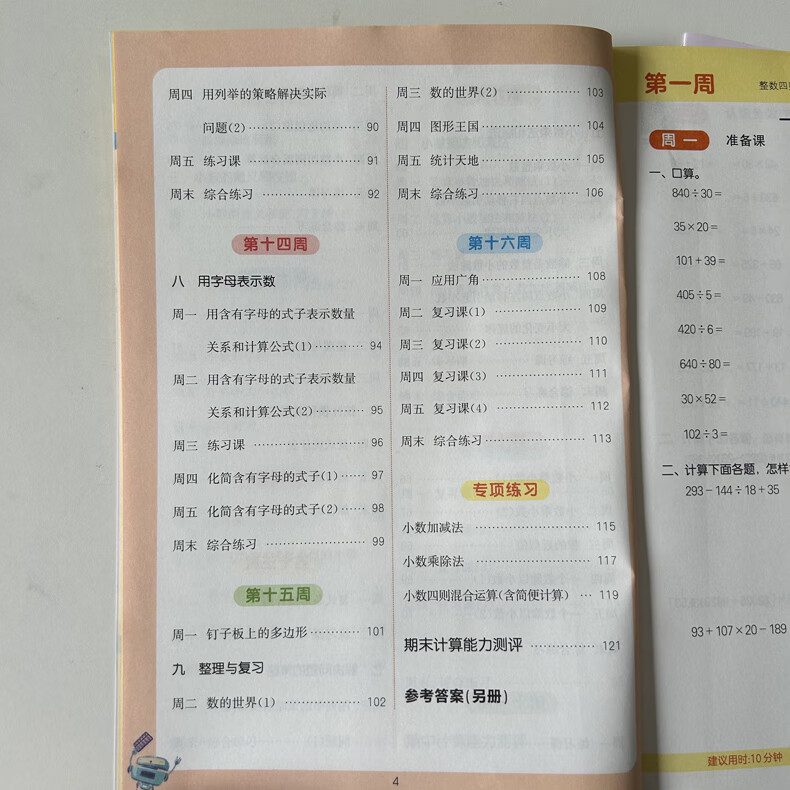 周四 用列举的策略解决实际
问题(2) 90
周五 练习课 91
周末 综合练习 92
第十四周
八 用字母表示数
周一 用含有字母的式子表示数量
关系和计算公式(1) 94
周二 用含有字母的式子表示数量
关系和计算公式(2) 95
周三 练习课 96
周四 化简含有字母的式子(1) 97
周五 化简含有字母的式子(2) 98
周末 综合练习 99
第十五周
周一 钉子板上的多边形 101
九 整理与复习
周二 数的世界(1) 102
周三 数的世界(2) 103
周四 图形王国 104
周五 统计天地 105
周末 综合练习 106
第十六周
周一 应用广角 108
周二 复习课(1) 109
周三 复习课(2) 110
周四 复习课(3) 111
周五 复习课(4) 112
周末 综合练习 113
专项练习
小数加减法 115
小数乘除法 117
小数四则混合运算(含简便计算) 119
期末计算能力测评 121
参考答案(另册)
4
第一周
整数四则
周一 准备课
一、口算。
840÷30=
35×20=
101+39=
405÷5=
420÷6=
640÷80=
30×52=
102÷3=
二、计算下面各题,怎样
293-144÷18+35
93+107×20-189
建议用时:10分钟